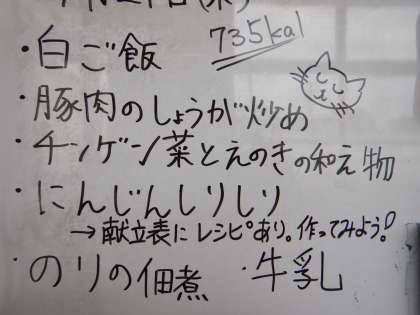 735kal
・白ご飯
・豚肉のしょうが炒め
・チンゲン菜とえのきの和え物
・にんじんしりしり
→献立表にレシピあり。作ってみよう!
・のりの佃煮 ・牛乳